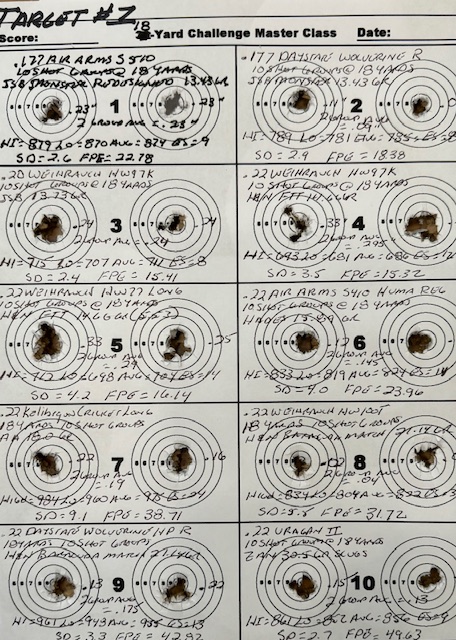 TARGET #1
Score: 18-Yard Challenge Master Class Date:
.177 AIR ARMS S510
10 SHOT GROUPS @ 18 YARDS
JSB MONSTER REDESIGNED 13.43 GR
1
.23"
.23"
2 GROUP AVG = .23"
HI = 879 LO = 870 AVG = 874 ES = 9
SD = 2.6 FPE = 22.78
.177 DAYSTATE WOLVERINE R
10 SHOT GROUPS @ 18 YARDS
JSB MONSTER 13.43 GR
2
2 GROUP AVG
HI = 789 LO = 781 AVG = 785 ES = 8
SD = 2.9 FPE = 18.38
.20 WEIHRAUCH HW97K
10 SHOT GROUPS @ 18 YARDS
JSB 13.73 GR
3
.24
.24
2 GROUP AVG = .24
HI = 715 LO = 707 AVG = 711 ES = 8
SD = 2.4 FPE = 15.41
.22 WEIHRAUCH HW97K
10 SHOT GROUPS @ 18 YARDS
H&N FTT 14.66 GR
4
.33
2 GROUP AVG = .395
HI = 693 LO = 681 AVG = 686 ES = 12
SD = 3.5 FPE = 15.32
.22 WEIHRAUCH HW77 LONG
10 SHOT GROUPS @ 18 YARDS
H&N FTT 14.66 GR
5
.33
.25
2 GROUP AVG = .29
HI = 712 LO = 698 AVG = 704 ES = 14
SD = 4.2 FPE = 16.14
.22 AIR ARMS S410 HUMA REG
10 SHOT GROUPS @ 18 YARDS
HADES 15.89 GR
6
.12
2 GROUP AVG = .145
HI = 833 LO = 819 AVG = 824 ES = 14
SD = 4.0 FPE = 23.96
.22 Kalibrgun CRICKET LONG
18 YARDS 10 SHOT GROUPS
AA 18.0 GR
7
.22
.16
2 GROUP AVG = .19
HIGH = 984 LO = 960 AVG = 975 ES = 24
SD = 9.1 FPE = 38.71
.22 WEIHRAUCH HW100T
18 YARDS 10 SHOT GROUPS
H&N BARACUDA MATCH 21.14 GR
8
2 GROUP AVG
SD = 5.5 FPE = 31.72
.22 DAYSTATE WOLVERINE HP R
18 YARDS 10 SHOT GROUPS
H&N BARACUDA MATCH 21.14 GR
9
.13
.22
2 GROUP AVG = .175
HI = 961 LO = 948 AVG = 955 ES = 13
SD = 3.3 FPE = 42.82
.22 URAGAN II
10 SHOT GROUPS @ 18 YARDS
ZAN 30.5 GR SLUGS
10
.15
2 GROUP AVG = .13
HI = 861 LO = 852 AVG = 856 ES = 9
SD = 2.7 FPE = 49.63